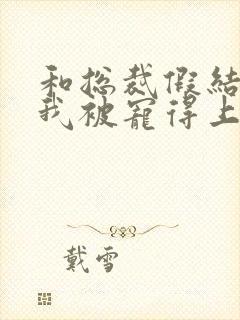 和总裁假结
我被宠得上
戴雪